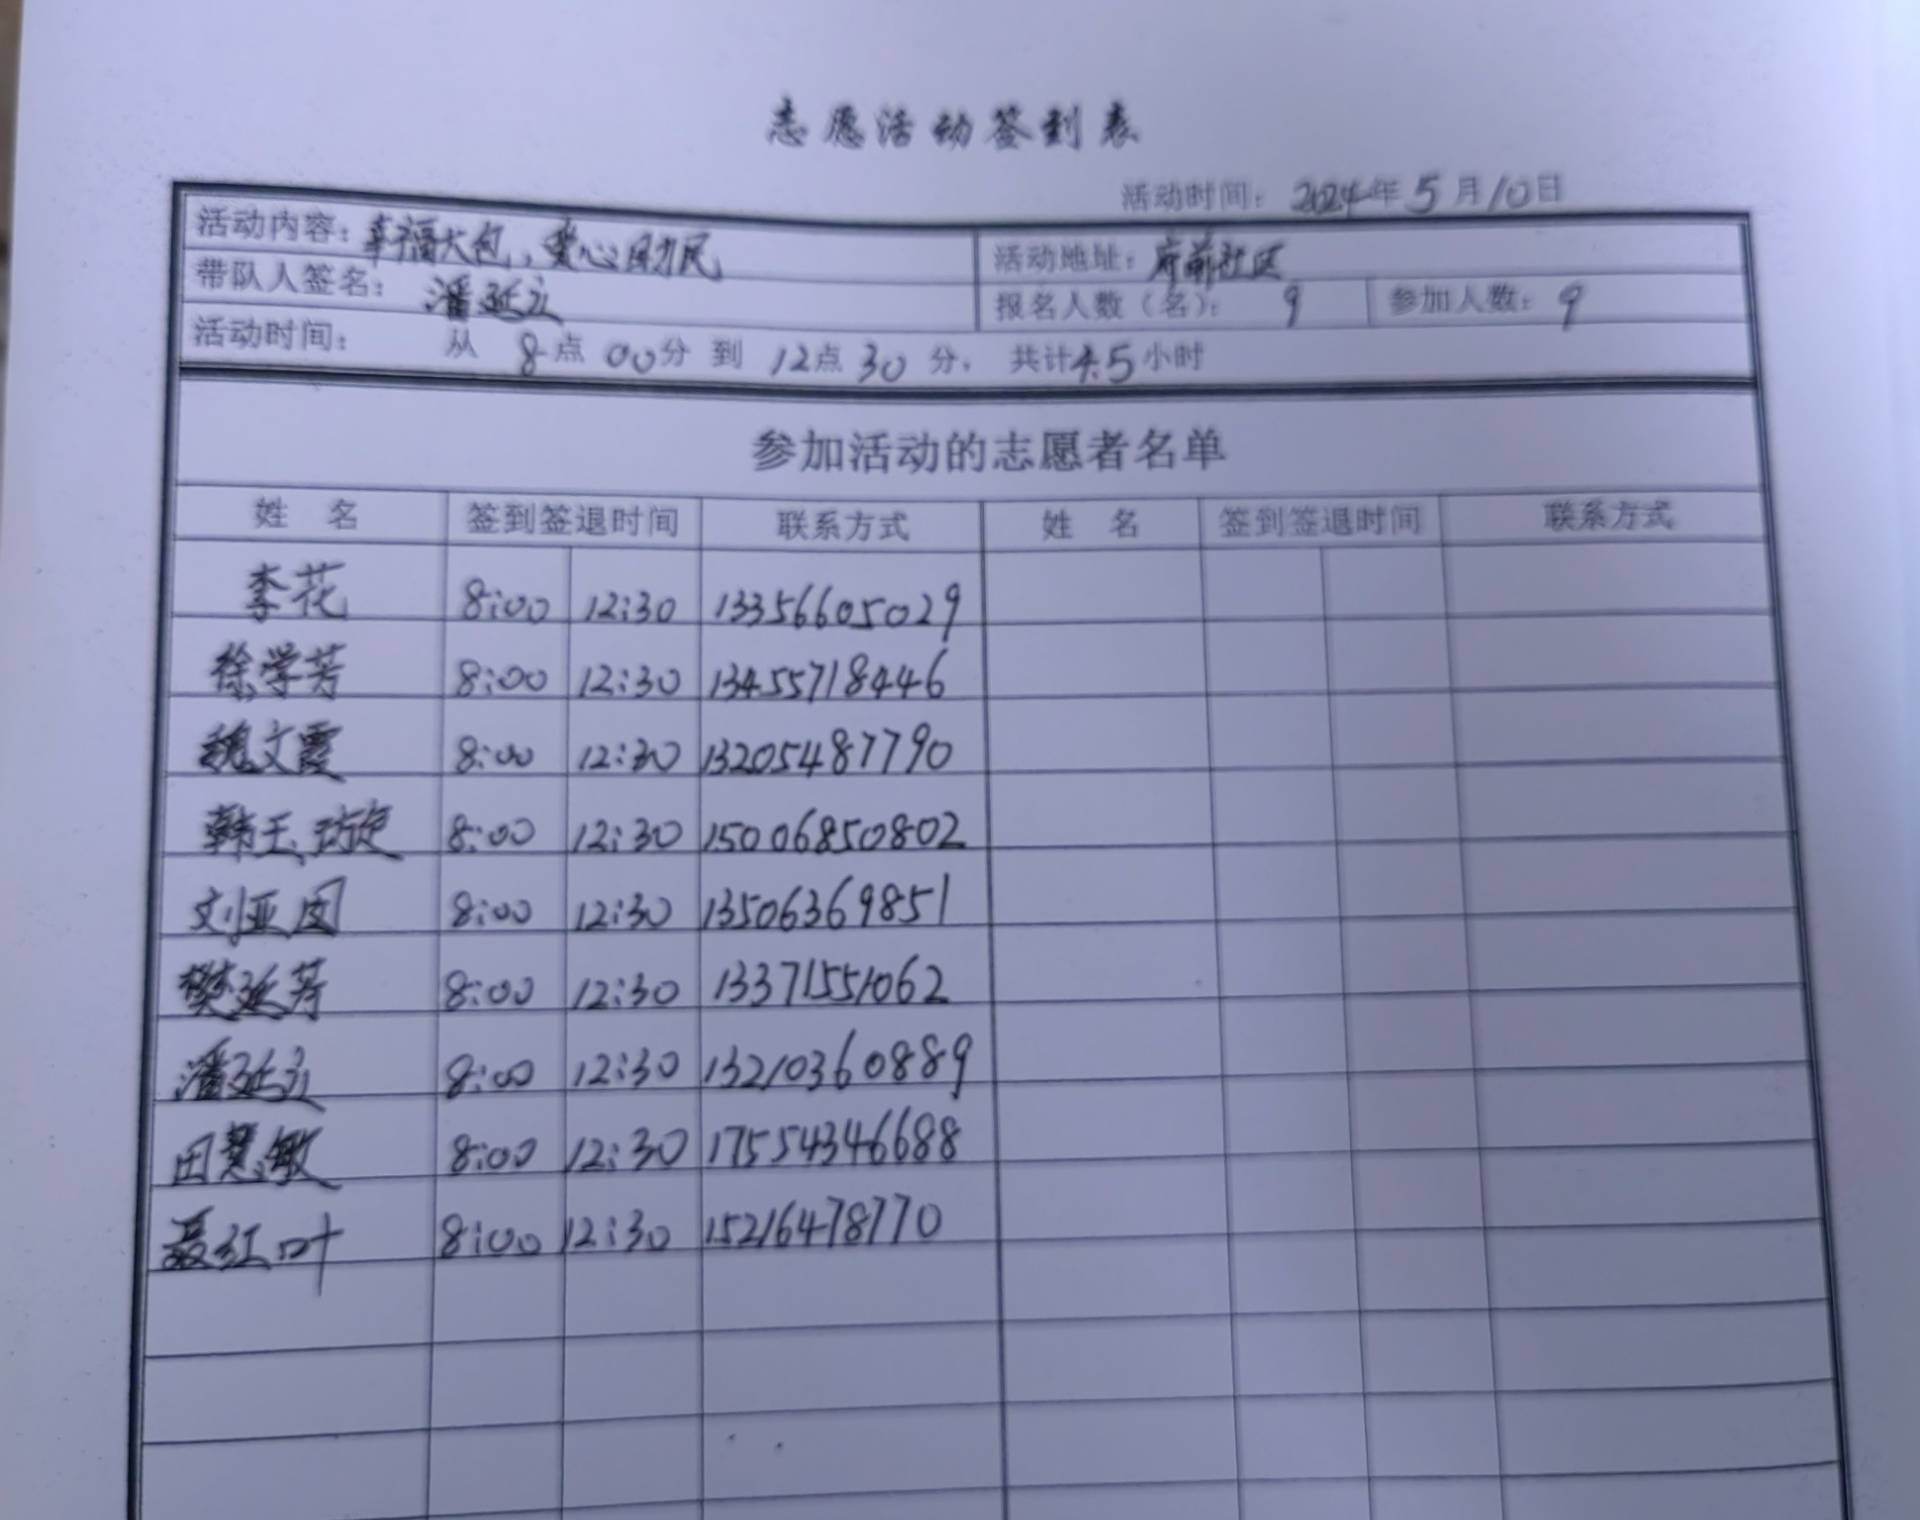 志愿活动签到表
活动时间：2024年5月10日
活动内容：幸福大包，爱心助民 活动地址：府前社区
带队人签名：潘延立 报名人数（名）：9 参加人数：9
活动时间：从8点00分到12点30分，共计4.5小时
参加活动的志愿者名单
姓 名 签到签退时间 联系方式 姓 名 签到签退时间 联系方式
李花 8:00 12:30 13356605029
徐学芳 8:00 12:30 13455718446
魏文霞 8:00 12:30 13205487790
韩玉璇 8:00 12:30 15006850802
刘亚囡 8:00 12:30 13506369851
樊延芳 8:00 12:30 13371551062
潘延立 8:00 12:30 13210360889
田慧敏 8:00 12:30 17554346688
聂红叶 8:00 12:30 15216478770